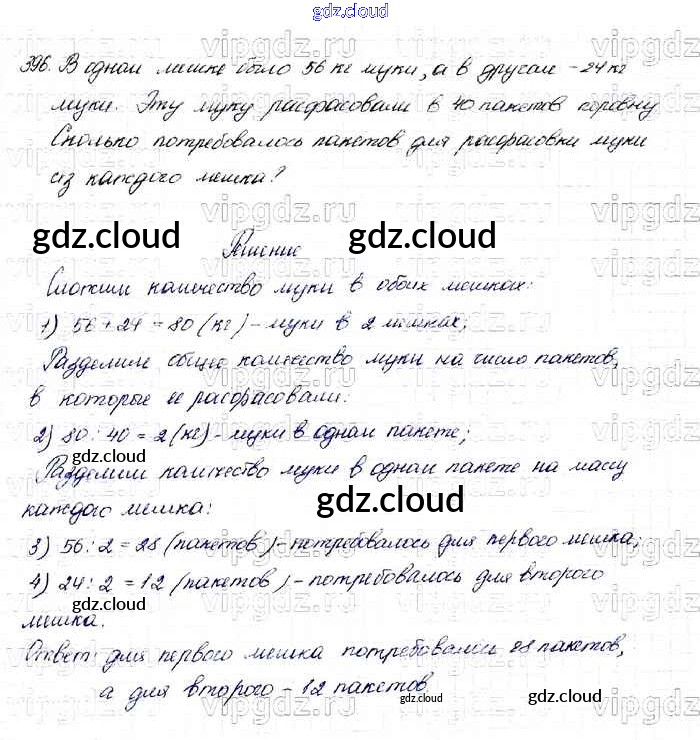 gdz.cloud
396. В одном мешке было 56 кг муки, а в другом – 24 кг
муки. Эту муку расфасовали в 40 пакетов поровну
Сколько потребовалось пакетов для расфасовки муки
из каждого мешка?
gdz.cloud gdz.cloud
Решение
Сложим количество муки в обоих мешках:
1) 56 + 24 = 80 (кг) – муки в 2 мешках;
Разделим общее количество муки на число пакетов,
в которые ее расфасовали:
2) 80 : 40 = 2 (кг) – муки в одном пакете;
gdz.cloud
Разделим количество муки в одном пакете на массу
каждого мешка:
gdz.cloud
3) 56 : 2 = 28 (пакетов) – потребовалось для первого мешка;
4) 24 : 2 = 12 (пакетов) – потребовалось для второго
gdz.cloud
мешка.
Ответ: для первого мешка потребовалось 28 пакетов,
а для второго – 12 пакетов.
gdz.cloud gdz.cloud